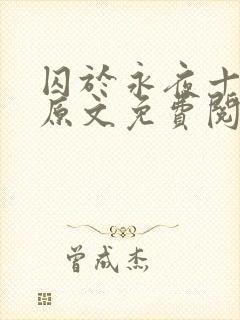 囚於永夜十
原文免費閱
曾成杰